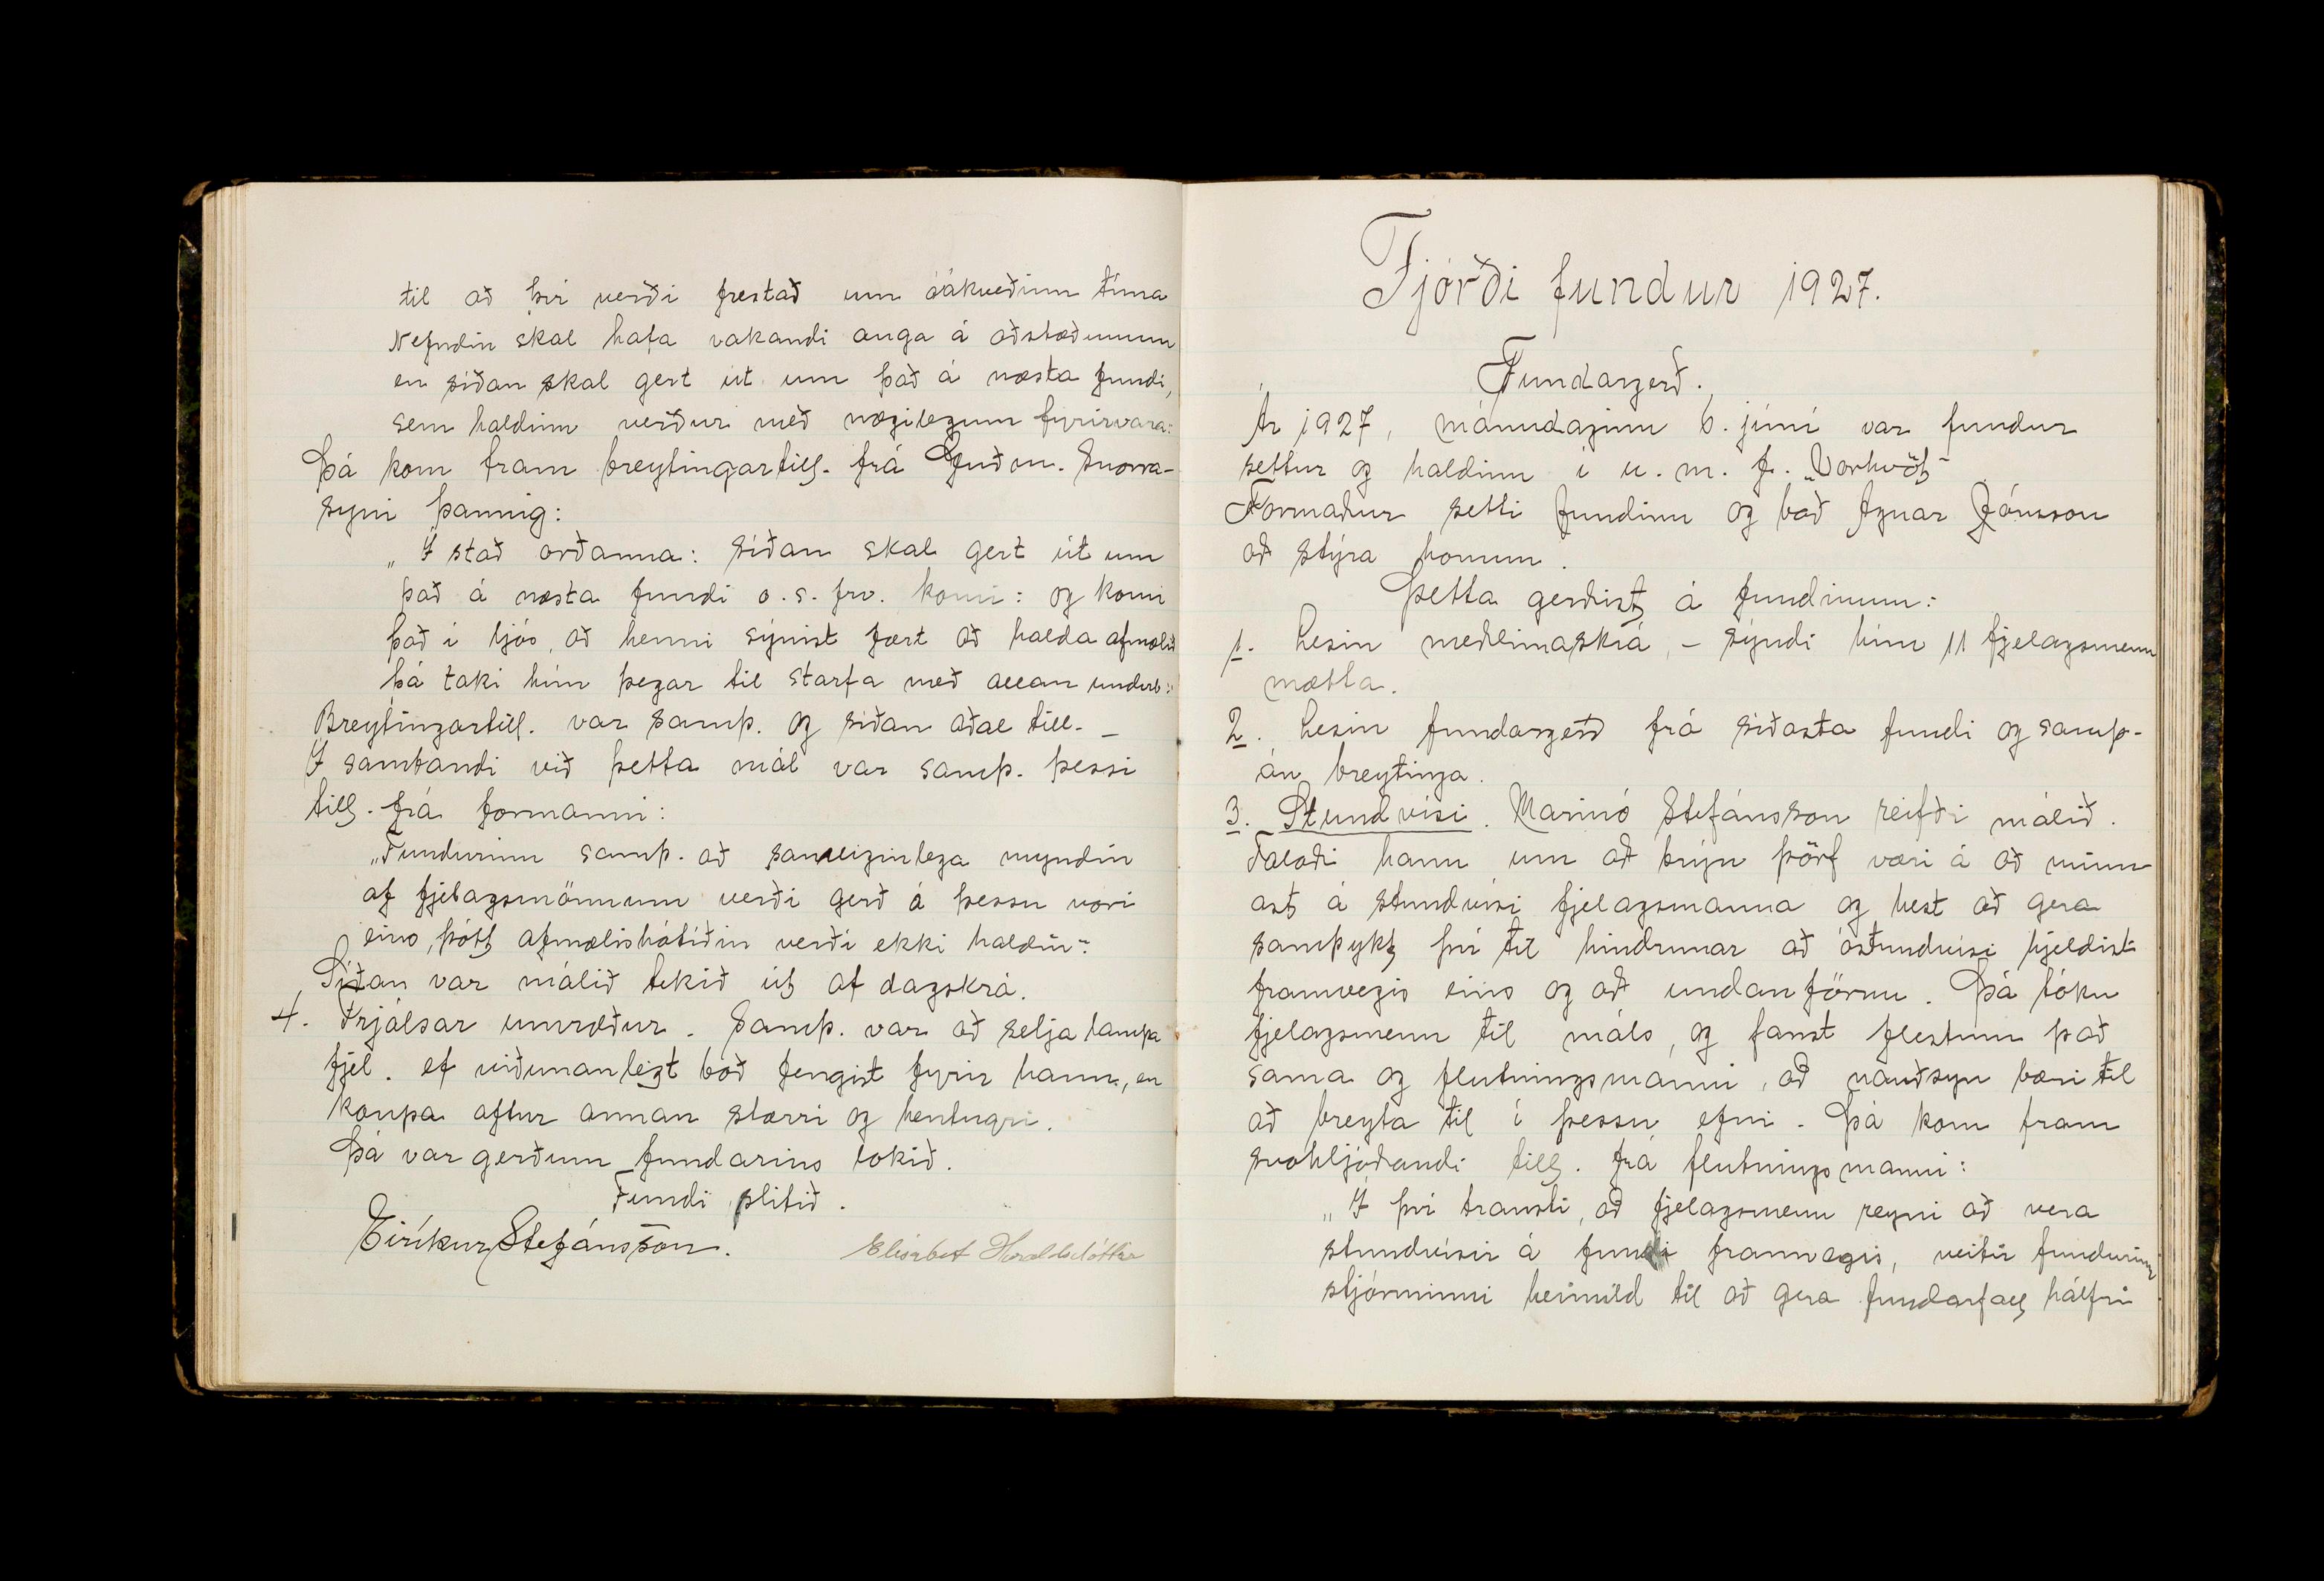 til að því verði frestað um óákveðinn tíma
Nefndin skal hafa vakandi auga á aðstæðunum
en síðan skal gert út um það á næsta fundi,
sem haldinn verður með nægilegum fyrirvara:
Þá kom fram breytingartill. frá Guðm. Snorra-
syni þannig:
„Í stað orðanna: síðan skal gert út um
það á næsta fundi o.s.frv. komi: og komi
það í ljós, að henni sýnist fært að halda afmælið
þá taki hún þegar til starfa með allan undirb:"
Breytingartill. var samþ. og síðan aðal till. –
Í sambandi við þetta mál var samþ. þessi
till. frá formanni:
„Fundurinn samþ. að sameiginlega myndin
af fjelagsmönnum verði gerð á þessu vori
eins, þótt afmælishátíðin verði ekki haldin"
Síðan var málið tekið út af dagskrá.
4. Frjálsar umræður. Samþ. var að selja lampa
fjel. ef viðunanlegt boð fengist fyrir hann, en
kaupa aftur annan stærri og hentugri.
Þá var gerðum fundarins lokið.
Fundi slitið.
Eiríkur Stefánsson.
Elísabet Haraldsdóttir
Fjórði fundur 1927.
Fundargerð.
Ár 1927, mánudaginn 6. júní var fundur
settur og haldinn í u.m.f. „Vorhvöt"
Formaður setti fundinn og bað Agnar Jónsson
að stýra honum.
Þetta gerðist á fundinum:
1. Lesin meðlimaskrá, – sýndi hún 11 fjelagsmenn
mætta.
2. Lesin fundargerð frá síðasta fundi og samþ-
án breytinga.
3. Stundvísi. Marinó Stefánsson reifði málið.
Talaði hann um að brýn þörf væri á að minn
ast á stundvísi fjelagsmanna og best að gera
samþykt því til hindrunar að óstundvísi hjeldist
framvegis eins og að undanförnu. Þá tóku
fjelagsmenn til máls, og fanst flestum það
sama og flutningsmanni, að nauðsyn bæri til
að breyta til í þessu efni. Þá kom fram
svohljóðandi till. frá flutningsmanni:
„Í því trausti, að fjelagsmenn reyni að vera
stundvísir á fundi framvegis, veitir fundurinn
stjórninni heimild til að gera fundarfall hálfri